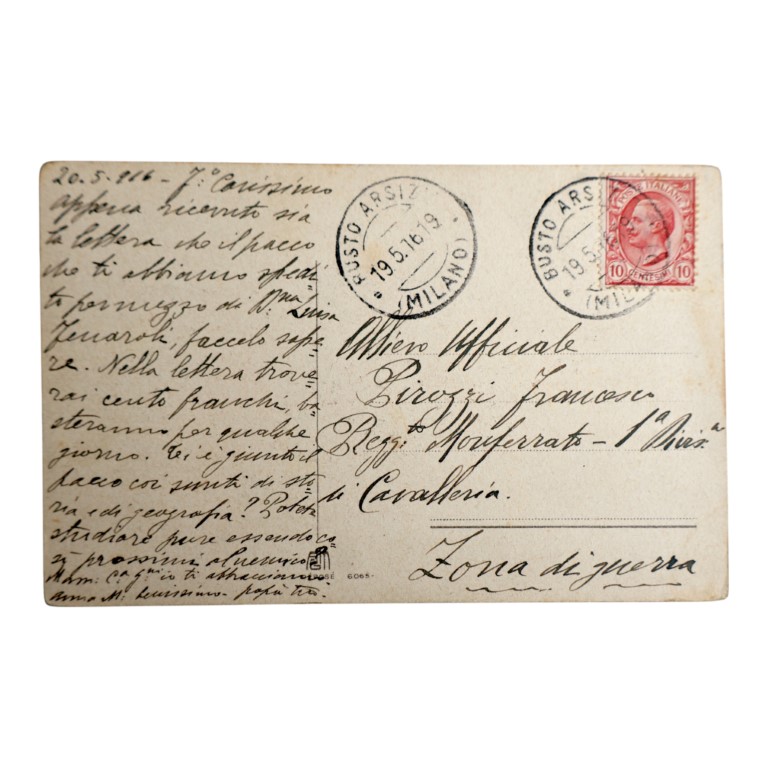 20.5.916 - F.º Carissimo
appena ricevuto sia
la lettera che il pacco
che ti abbiamo spedi
to per mezzo di D.na Luisa
Fenaroli, faccelo sape
re. Nella lettera trove
rai cento franchi, ba
steranno per qualche
giorno. Ti è giunto il
pacco coi sunti di sto
ria e di geografia? Potete
studiare pure essendo co
sì prossimi al nemico
io ti abbracciamo
papà tuo
BUSTO ARSIZIO
19.5.16 19
(MILANO)
BUSTO ARSIZ
19.5.16
(MILA
POSTE ITALIANE
10 CENTESIMI 10
Allievo Ufficiale
Pirozzi Francesco
Regg.to Monferrato - 1ª Divis.ª
di Cavalleria.
Zona di guerra
6065-